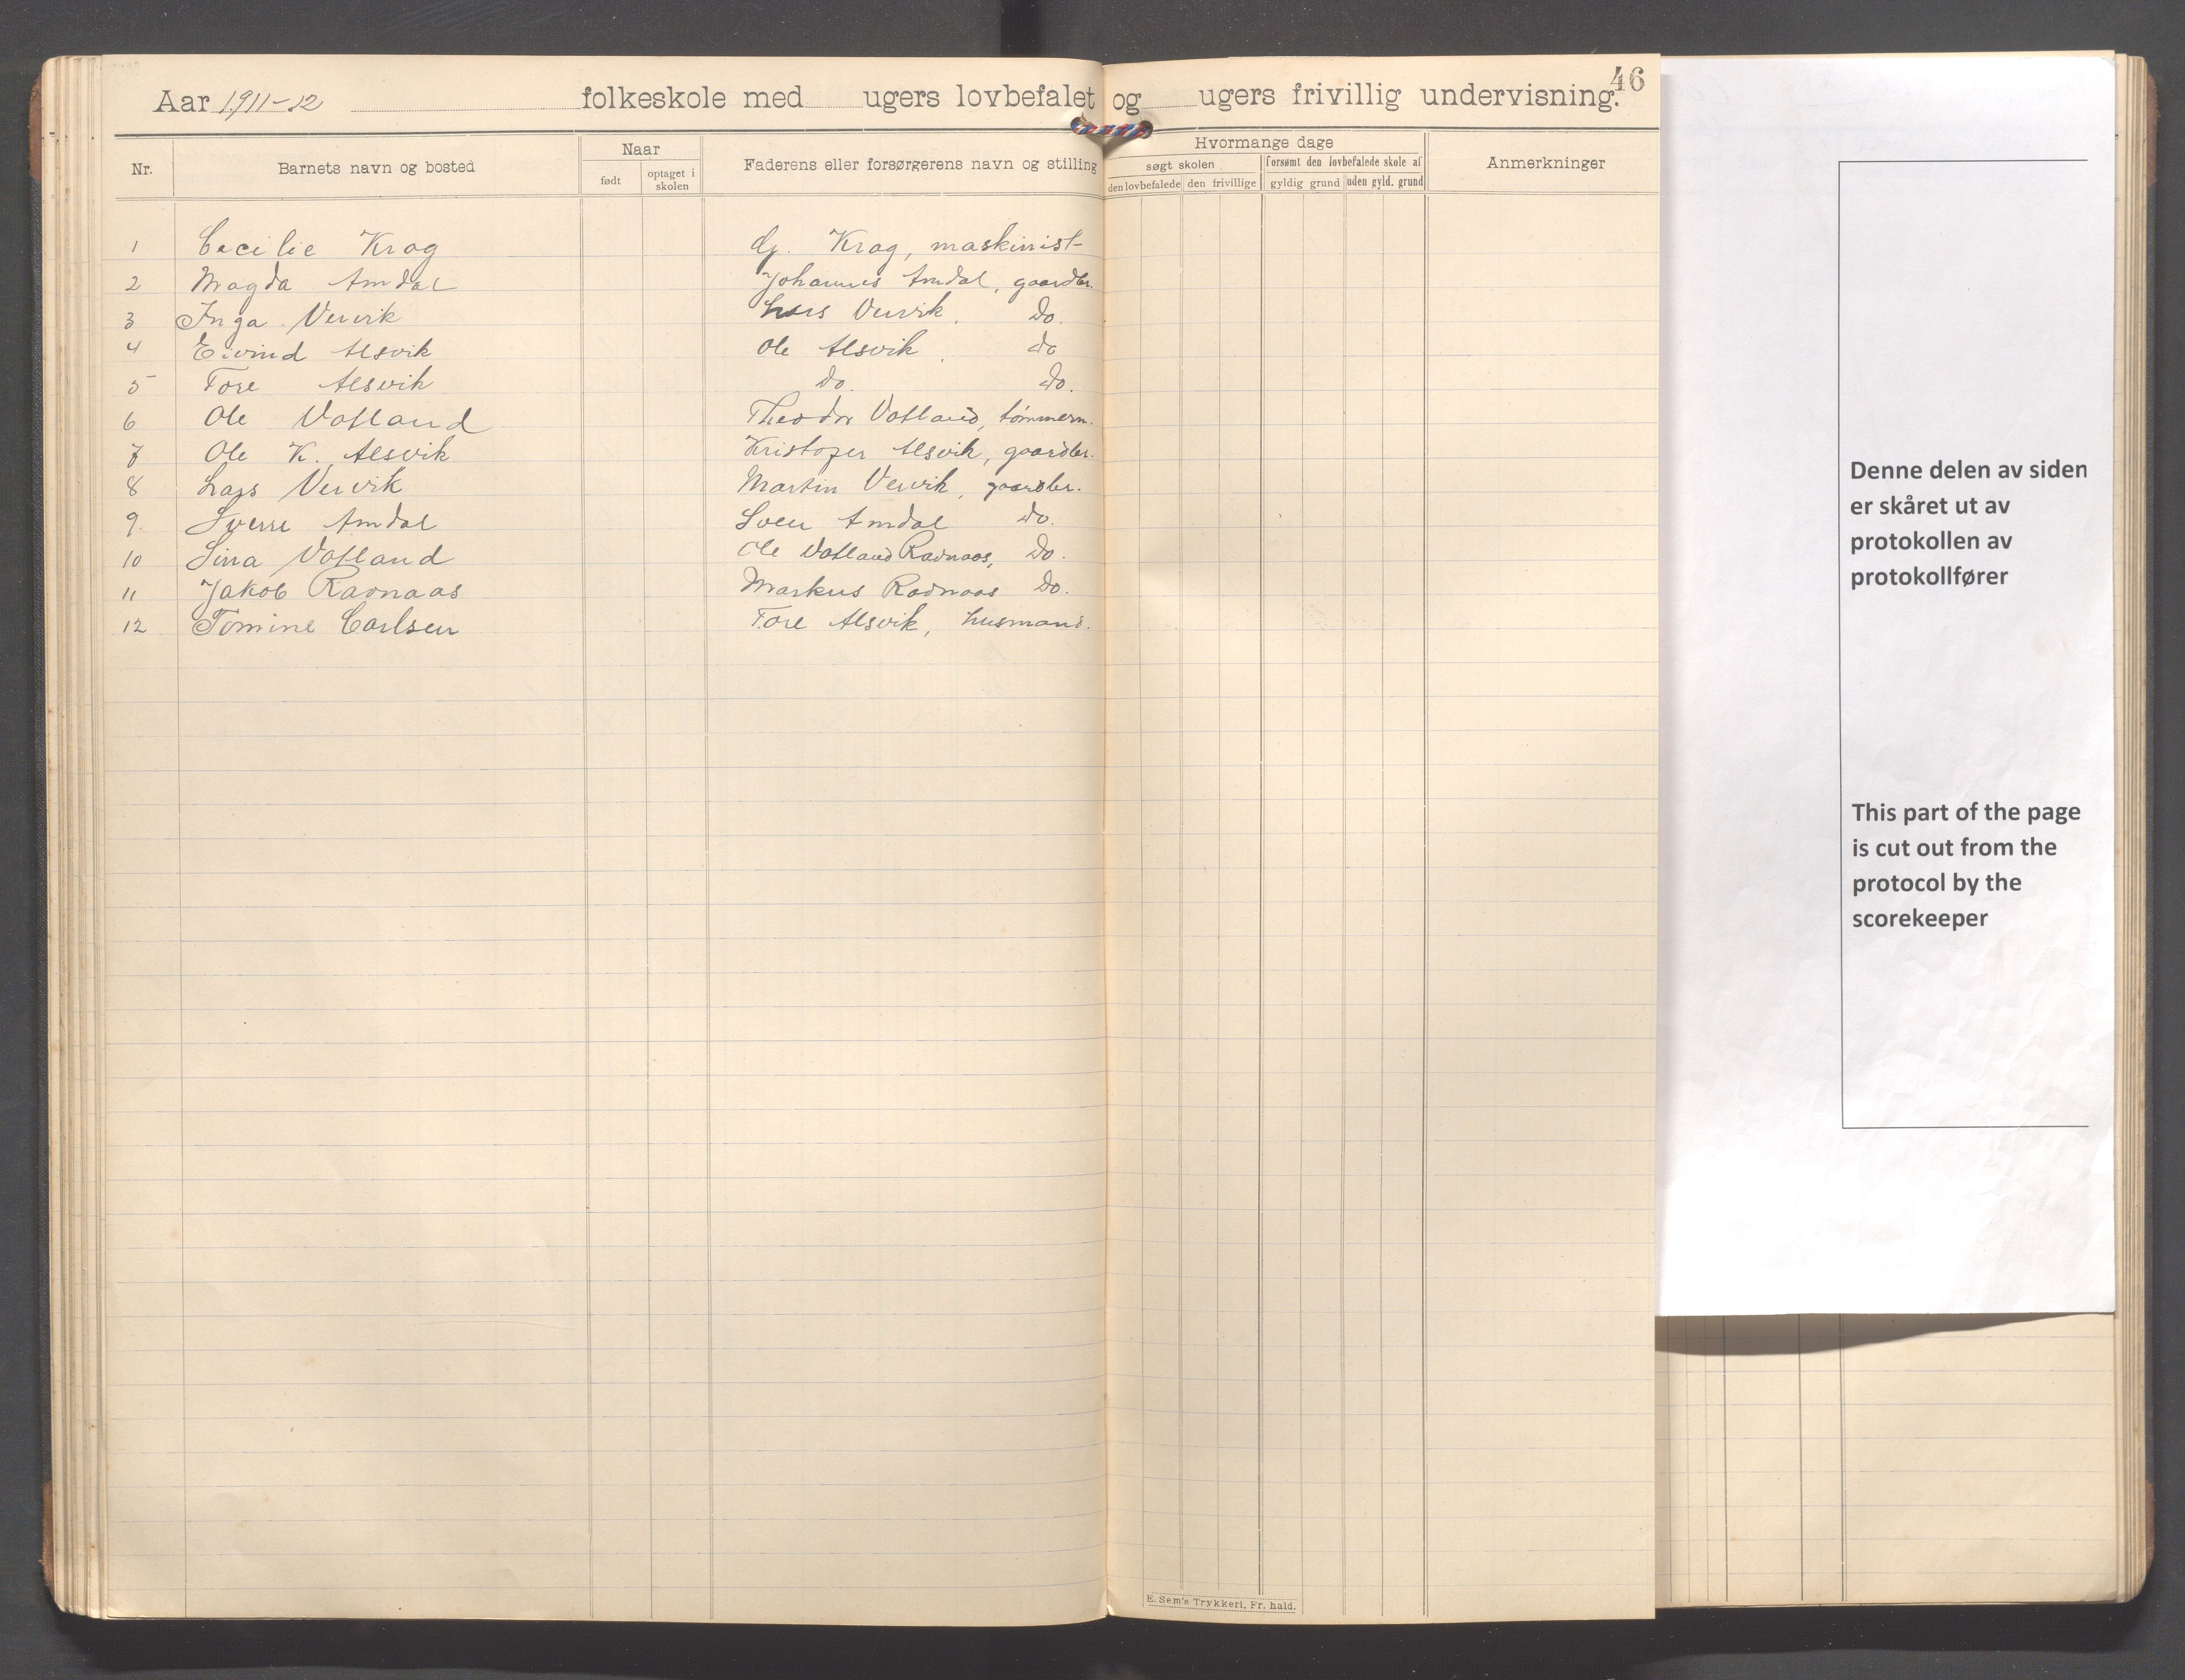 46
Aar 1911-12 folkeskole med ugers lovbefalet og ugers frivillig undervisning.
Nr. Barnets navn og bosted Naar født optaget i skolen Faderens eller forsørgerens navn og stilling Hvormange dage søgt skolen den lovbefalede den frivillige forsømt den lovbefalede skole af gyldig grund uden gyld. grund Anmerkninger
1 Cecilie Krag Krag, maskinist
2 Magda Amdal Johannes Amdal, gaardbr.
3 Inga Vervik Lars Vervik, Do.
4 Eivind Alsvik Ole Alsvik, do
5 Tore Alsvik Do. Do.
6 Ole Vatland Theodor Vatland, tømmerm.
7 Ole K. Alsvik Kristofer Alsvik, gaardbr.
8 Lars Vervik Martin Vervik, gaardbr.
9. Sverre Amdal Sven Amdal Do.
10 Sina Vatland Ole Vatland Ravnaas, Do.
11 Jakob Ravnaas Markus Ravnaas Do.
12 Tomine Carlsen Tore Alsvik, husmand.
E. Sem's Trykkeri, Fr. hald.
Denne delen av siden
er skåret ut av
protokollen av
protokollfører
This part of the page
is cut out from the
protocol by the
scorekeeper